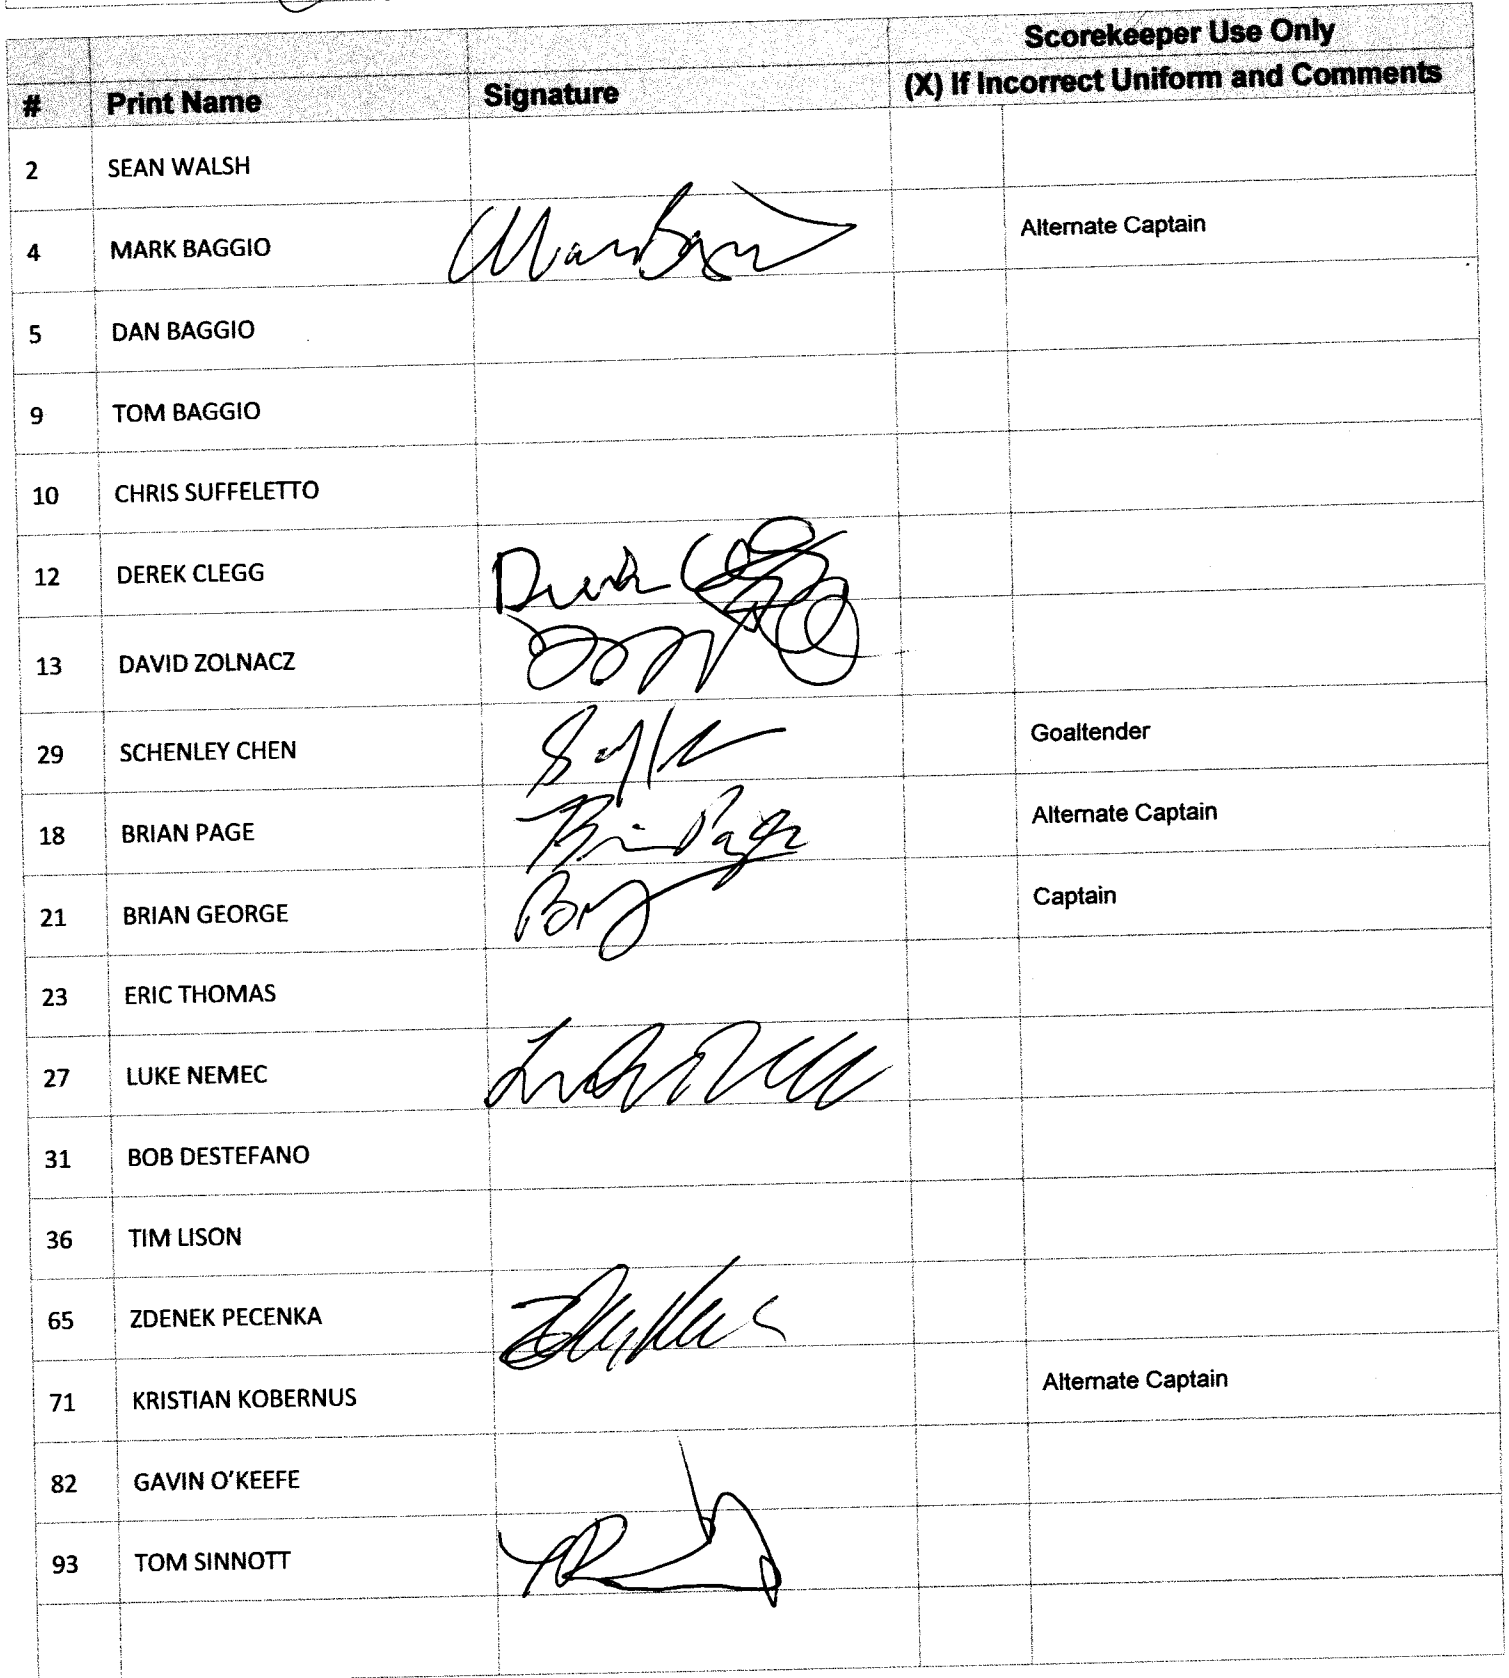 Scorekeeper Use Only
# Print Name Signature (X) If Incorrect Uniform and Comments
2 SEAN WALSH
4 MARK BAGGIO Alternate Captain
5 DAN BAGGIO
9 TOM BAGGIO
10 CHRIS SUFFELETTO
12 DEREK CLEGG Derek
13 DAVID ZOLNACZ
29 SCHENLEY CHEN Goaltender
18 BRIAN PAGE Brian Page Alternate Captain
21 BRIAN GEORGE Captain
23 ERIC THOMAS
27 LUKE NEMEC
31 BOB DESTEFANO
36 TIM LISON
65 ZDENEK PECENKA
71 KRISTIAN KOBERNUS Alternate Captain
82 GAVIN O'KEEFE
93 TOM SINNOTT